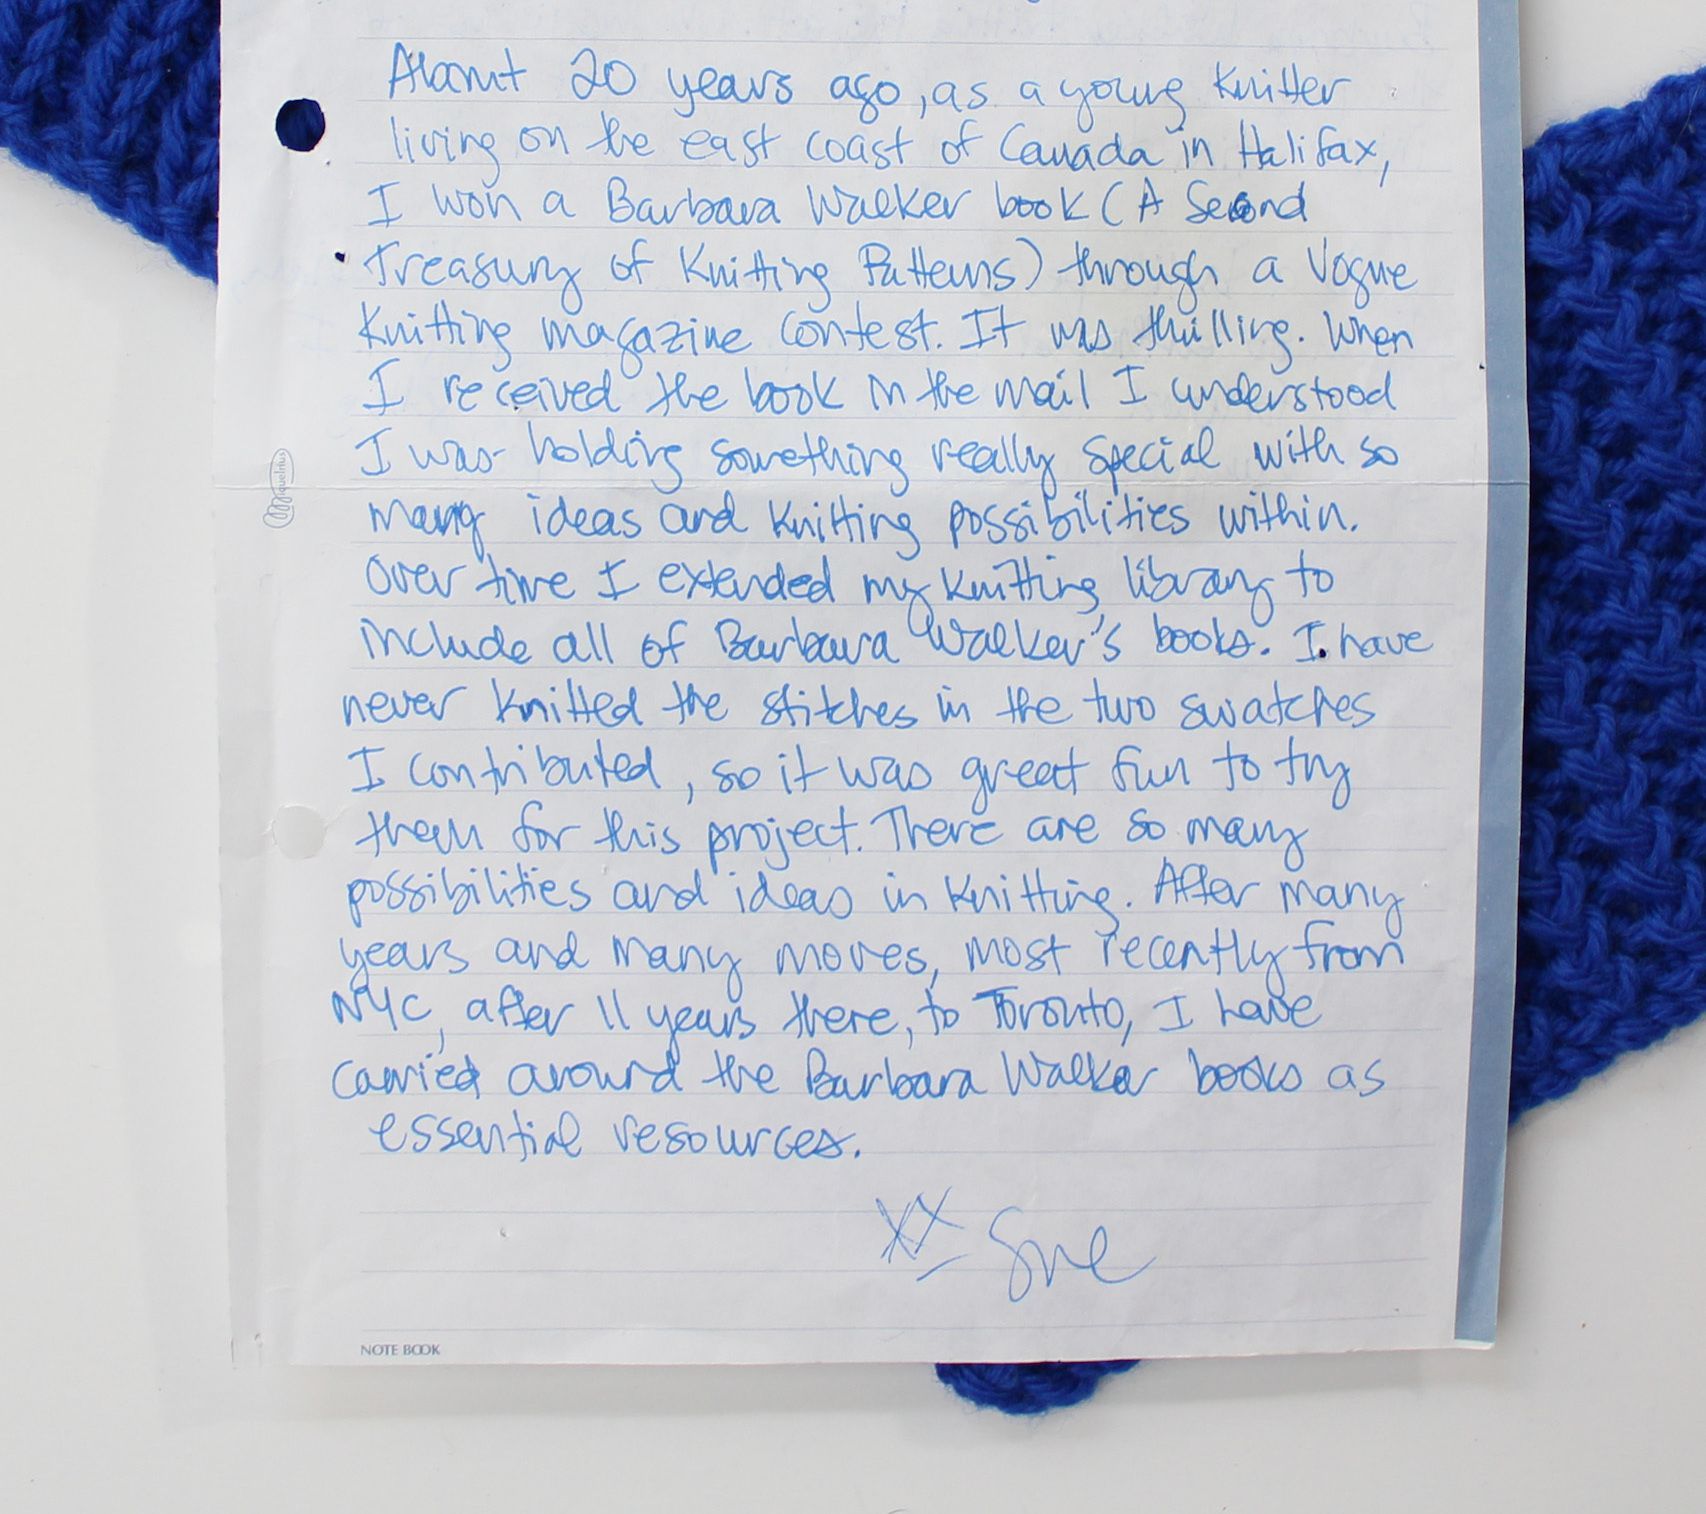 About 20 years ago, as a young knitter
living on the east coast of Canada in Halifax,
I won a Barbara Walker book (A Second
Treasury of Knitting Patterns) through a Vogue
Knitting magazine contest. It was thrilling. When
I received the book in the mail I understood
I was holding something really special with so
many ideas and knitting possibilities within.
Over time I extended my knitting library to
include all of Barbara Walker's books. I have
never knitted the stitches in the two swatches
I contributed, so it was great fun to try
them for this project. There are so many
possibilities and ideas in knitting. After many
years and many moves, most recently from
NYC, after 11 years there, to Toronto, I have
carried around the Barbara Walker books as
essential resources.
XX Sue
Miquelrius
NOTE BOOK